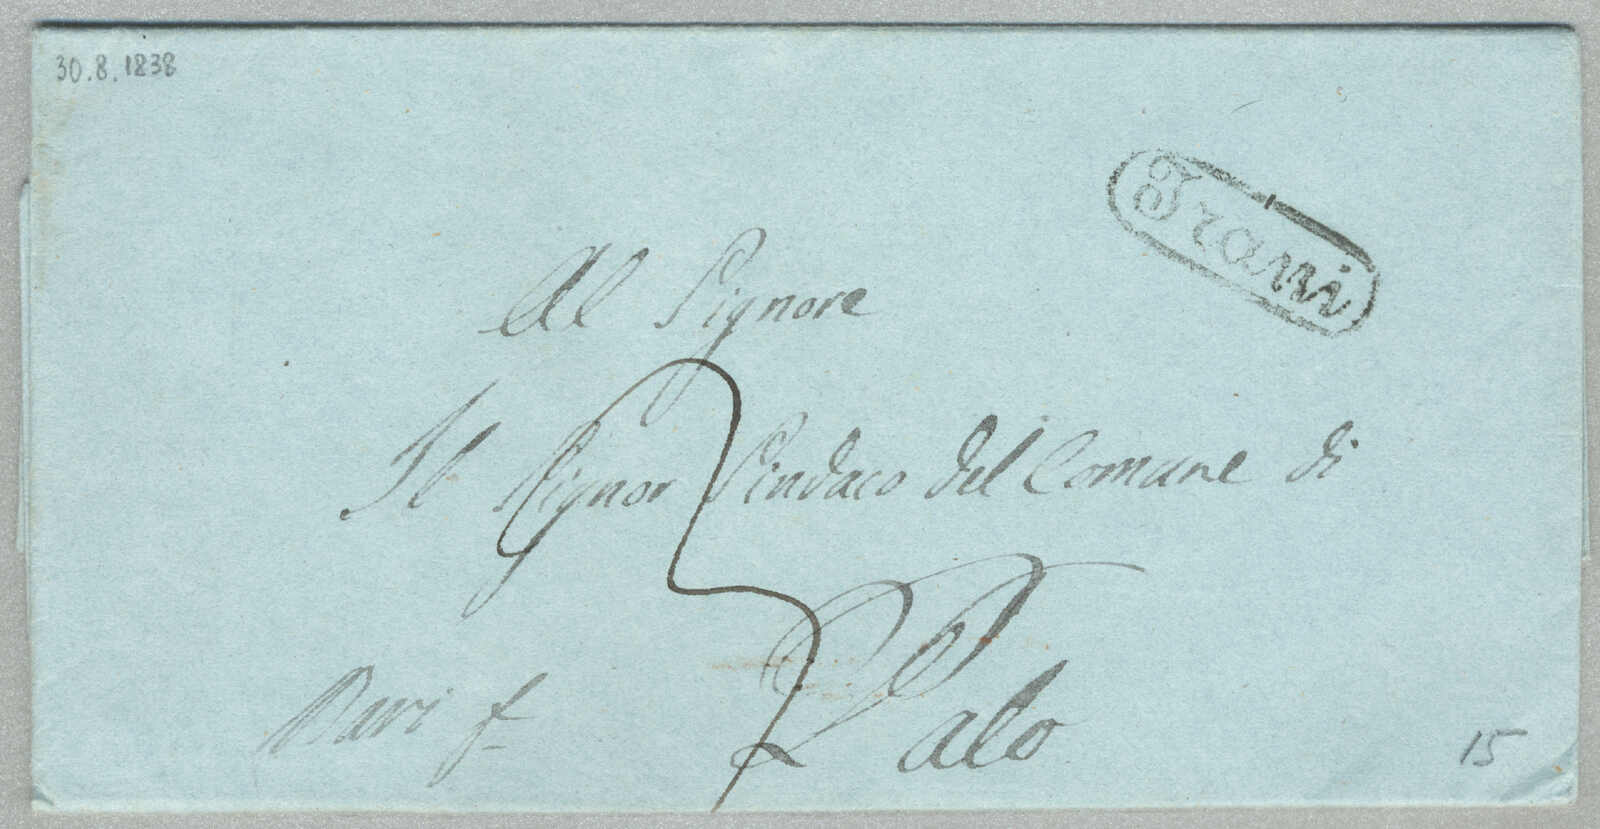 30.8.1838
Trani
Al Signore
Il Signor Sindaco del Comune di
Palo
Bari f
15